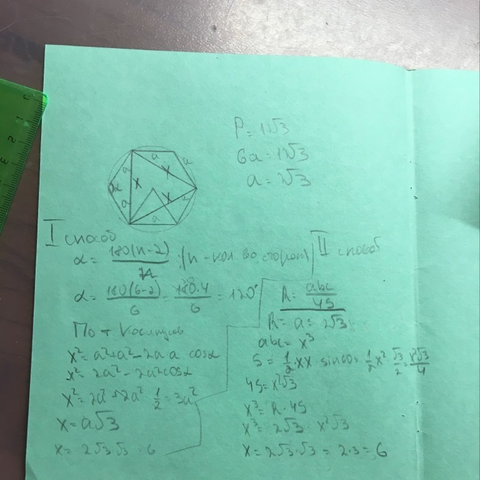 P = 12√3
6a = 12√3
a = 2√3
a
a
x
x
a
a
x
a
I способ
α = 180(n-2)/n (n - кол во сторон)
α = 180(6-2)/6 = 180·4/6 = 120°
По т Косинусов
x² = a²+a² - 2a a cosα
x² = 2a² - 2a² cosα
x² = 2a² + 2a² 1/2 = 3a²
x = a√3
x = 2√3·√3 = 6
II способ
R = abc/4S
R = a = 2√3
abc = x³
S = 1/2 · x x sin60 = 1/2 x² · √3/2 = x²√3/4
4S = x²√3
x³ = R · 4S
x³ = 2√3 · x²√3
x = 2√3·√3 = 2·3 = 6